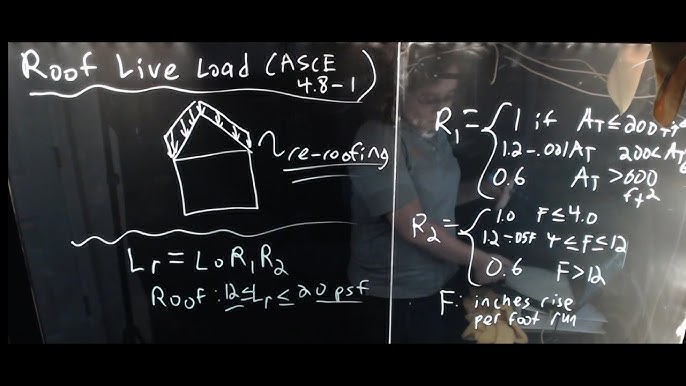 Roof Live Load (ASCE
4.8-1)
re-roofing
Lr = LoR1R2
Roof: 12 ≤ Lr ≤ 20 psf
R1 = { 1 if AT ≤ 200 ft
1.2-.001AT 200 < AT
0.6 AT > 600
ft2
R2 = { 1.0 F ≤ 4.0
1.2-.05F 4 ≤ F ≤ 12
0.6 F > 12
F: inches rise
per foot run